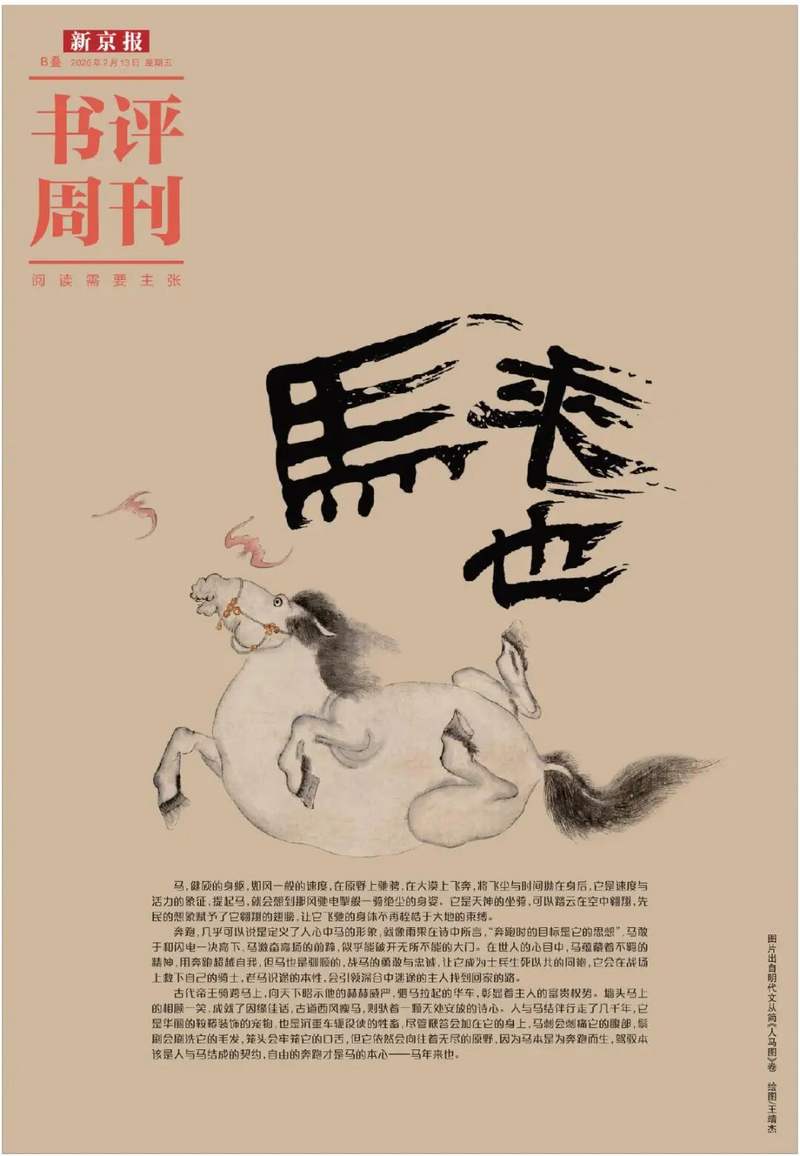 新京报
B叠 2026年2月13日 星期五
书评
周刊
阅读需要主张
馬来
也
马，健硕的身躯，如风一般的速度，在原野上驰骋，在大漠上飞奔，将飞尘与时间抛在身后，它是速度与
活力的象征，提起马，就会想到那风驰电掣般一骑绝尘的身姿。它是天神的坐骑，可以踏云在空中翱翔，先
民的想象赋予了它翱翔的翅膀，让它飞驰的身体不再桎梏于大地的束缚。
奔跑，几乎可以说是定义了人心中马的形象，就像雨果在诗中所言，“奔跑时的目标是它的思想”，马敢
于和闪电一决高下，马激奋高扬的前蹄，似乎能破开无所不能的大门。在世人的心目中，马蕴藏着不羁的
精神，用奔跑超越自我，但马也是驯顺的，战马的勇敢与忠诚，让它成为士兵生死以共的同袍，它会在战场
上救下自己的骑士，老马识途的本性，会引领深谷中迷途的主人找到回家的路。
古代帝王骑跨马上，向天下昭示他的赫赫威严，驷马拉起的华车，彰显着主人的富贵权势。墙头马上
的相顾一笑，成就了因缘佳话，古道西风瘦马，则驮着一颗无处安放的诗心。人与马结伴行走了几千年，它
是华丽的鞍鞯装饰的宠物，也是沉重车辕役使的牲畜，尽管鞭笞会加在它的身上，马刺会刺痛它的腹部，鬃
刷会刷洗它的毛发，笼头会牢笼它的口舌，但它依然会向往着无尽的原野，因为马本是为奔跑而生，驾驭本
该是人与马结成的契约，自由的奔跑才是马的本心——马年来也。
图片出自明代文从简《人马图》卷 绘图/王靖杰